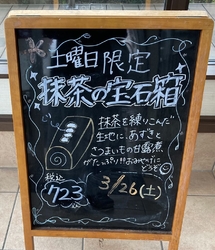 土曜日限定
抹茶の宝石箱
抹茶を練りこんだ
生地にあずきと
さつまいもの甘露煮
がたっぷり!!おみやげに
どうぞ
税込
723
3/26(土)